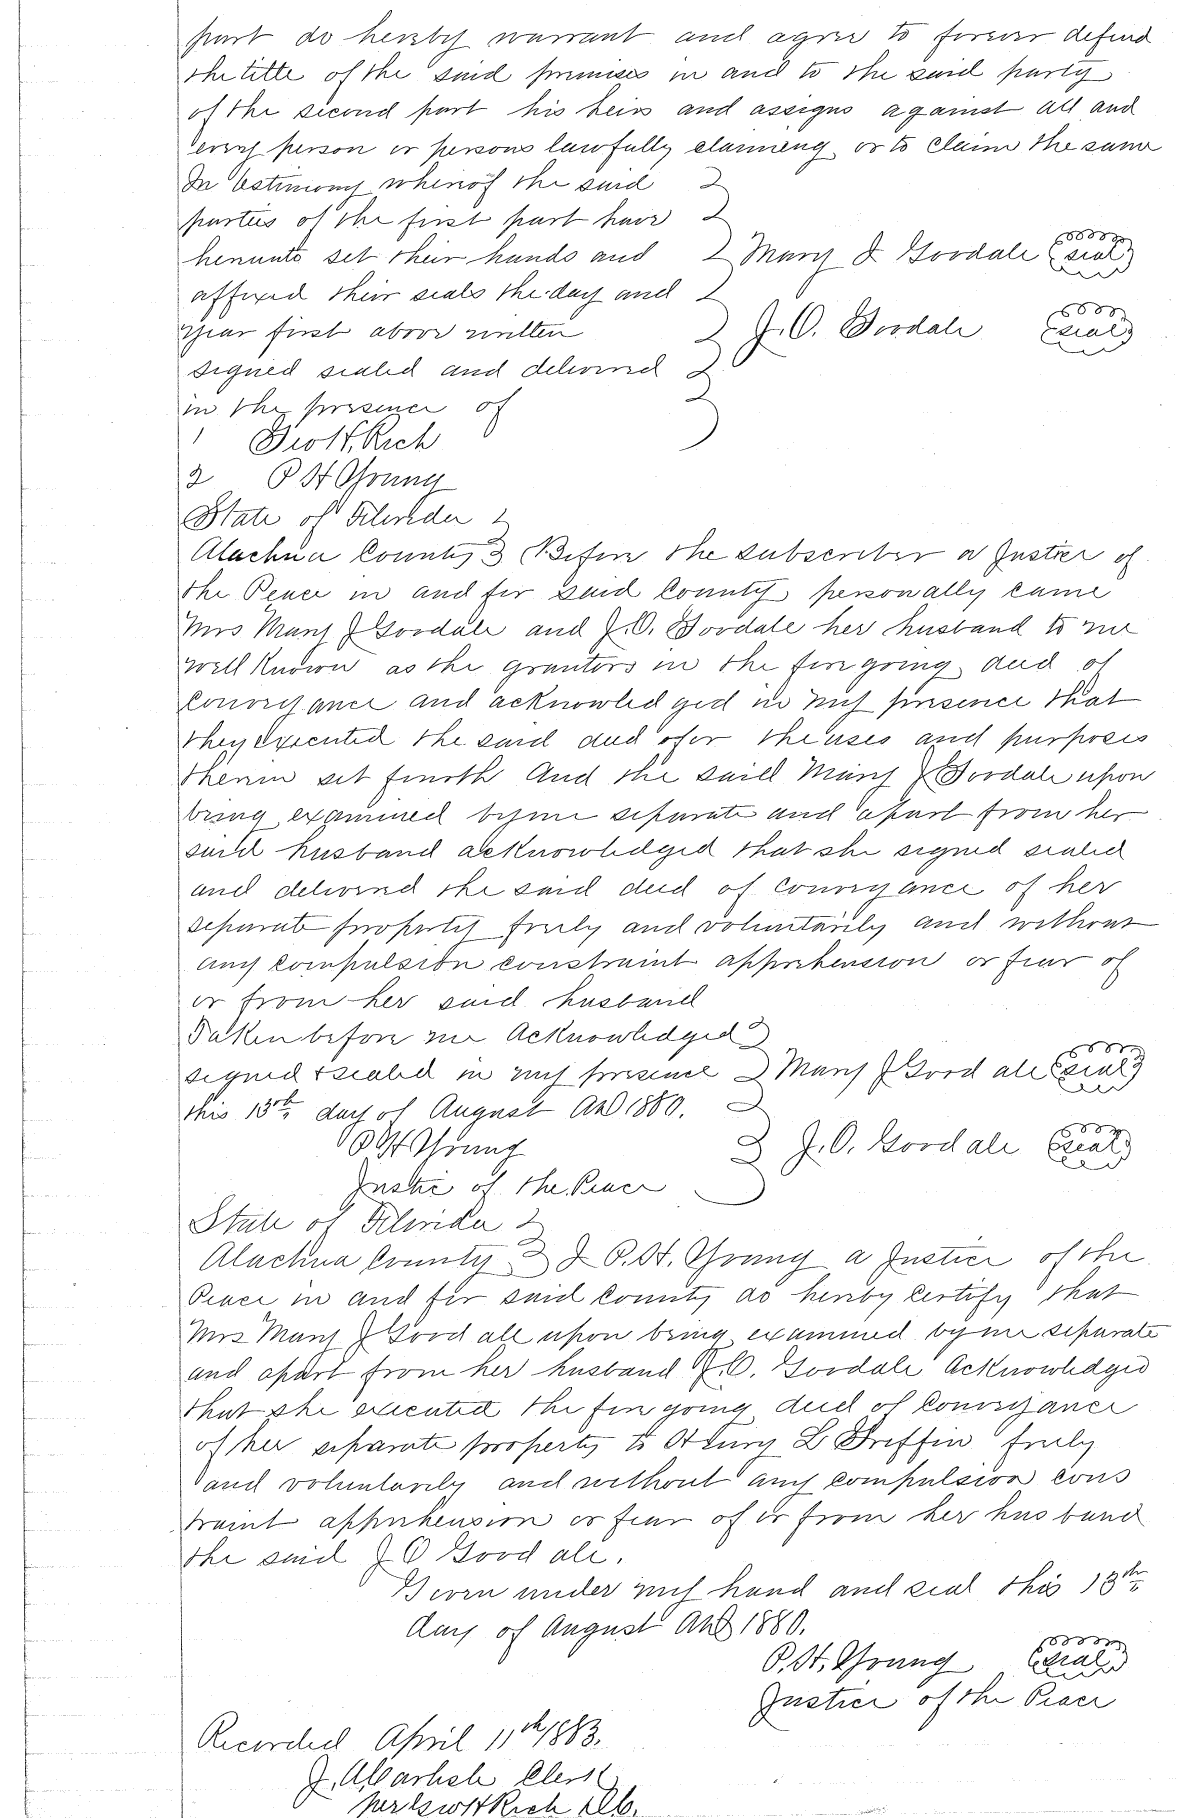 part do hereby warrant and agree to forever defend
the title of the said premises in and to the said party
of the second part his heirs and assigns against all and
every person or persons lawfully claiming or to claim the same
In testimony whereof the said
parties of the first part have
hereunto set their hands and Mary J Goodale (seal)
affixed their seals the day and
year first above written J. O. Goodale (seal)
signed sealed and delivered
in the presence of
1 Geo H. Rich
2 P H Young
State of Florida
Alachua County Before the subscriber a Justice of
the Peace in and for said County personally came
Mrs Mary J Goodale and J. O. Goodale her husband to me
well known as the grantors in the foregoing deed of
conveyance and acknowledged in my presence that
they executed the said deed for the uses and purposes
therein set fourth And the said Mary J Goodale upon
being examined by me separate and apart from her
said husband acknowledged that she signed sealed
and delivered the said deed of conveyance of her
separate property freely and voluntarily and without
any compulsion constraint apprehension or fear of
or from her said husband
Taken before me Acknowledged
signed & sealed in my presence Mary J Goodale (seal)
this 13th day of August AD 1880.
P H Young J. O. Goodale (seal)
Justice of the Peace
State of Florida
Alachua County I P. H. Young a Justice of the
Peace in and for said County do hereby certify that
Mrs Mary J Goodale upon being examined by me separate
and apart from her husband J. O. Goodale Acknowledged
that she executed the foregoing deed of conveyance
of her separate property to Henry L Griffin freely
and voluntarily and without any compulsion cons
traint apprehension or fear of or from her husband
the said J O Goodale.
Given under my hand and seal this 13th
day of August AD 1880.
P. H. Young (seal)
Justice of the Peace
Recorded April 11th 1883.
J. A. Carlisle Clerk
per Geo H Rich D.C.